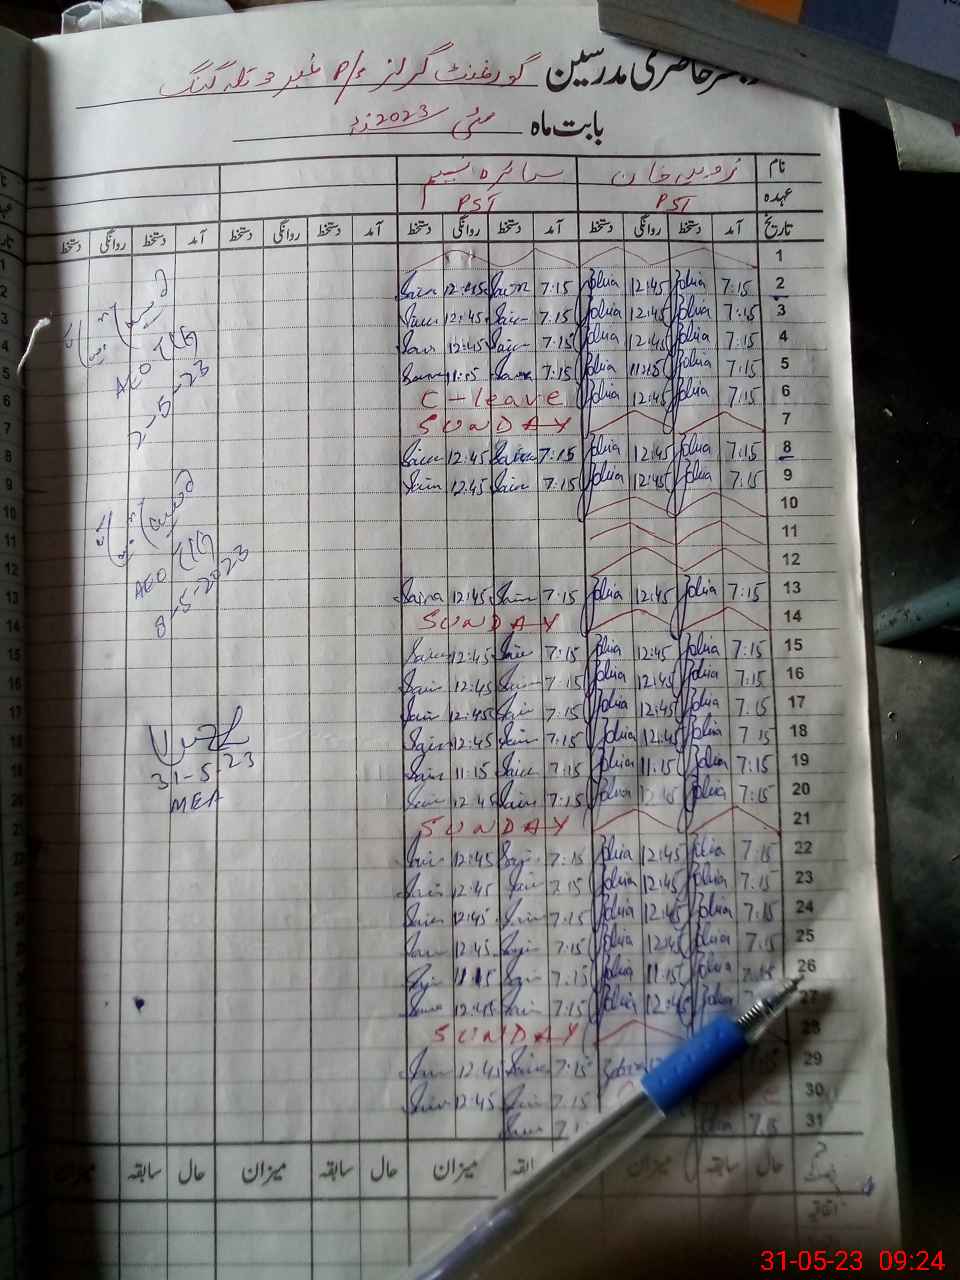 حاضری مدرسین گورنمنٹ گرلز P/S نمبر 3 تلہ گنگ
بابت ماہ مئی 2023ء
نام زوبیہ خان سائرہ نسیم
عہدہ PST PST
تاریخ آمد دستخط روانگی دستخط آمد دستخط روانگی دستخط آمد دستخط روانگی دستخط آمد دستخط روانگی دستخط
1
2 7:15 Zobia 12:45 Zobia 7:15 Saira 12:45 Saira
3 7:15 Zobia 12:45 Zobia 7:15 Saira 12:45 Saira
4 7:15 Zobia 12:45 Zobia 7:15 Saira 12:45 Saira
5 7:15 Zobia 11:15 Zobia 7:15 Saira 11:15 Saira
6 7:15 Zobia 12:45 Zobia C-leave
7 SUNDAY
8 7:15 Zobia 12:45 Zobia 7:15 Saira 12:45 Saira
9 7:15 Zobia 12:45 Zobia 7:15 Saira 12:45 Saira
10
11
12
13 7:15 Zobia 12:45 Zobia 7:15 Saira 12:45 Saira
14 SUNDAY
15 7:15 Zobia 12:45 Zobia 7:15 Saira 12:45 Saira
16 7:15 Zobia 12:45 Zobia 7:15 Saira 12:45 Saira
17 7:15 Zobia 12:45 Zobia 7:15 Saira 12:45 Saira
18 7:15 Zobia 12:45 Zobia 7:15 Saira 12:45 Saira
19 7:15 Zobia 11:15 Zobia 7:15 Saira 11:15 Saira
20 7:15 Zobia 12:45 Zobia 7:15 Saira 12:45 Saira
21 SUNDAY
22 7:15 Zobia 12:45 Zobia 7:15 Saira 12:45 Saira
23 7:15 Zobia 12:45 Zobia 7:15 Saira 12:45 Saira
24 7:15 Zobia 12:45 Zobia 7:15 Saira 12:45 Saira
25 7:15 Zobia 12:45 Zobia 7:15 Saira 12:45 Saira
26 7:15 Zobia 11:15 Zobia 7:15 Saira 11:15 Saira
27 Zobia 12:45 Zobia 7:15 Saira 12:45 Saira
28 SUNDAY
29 7:15 Zobia 7:15 Saira 12:45 Saira
30 7:15 Saira 12:45 Saira
31 7:15 Zobia Saira
حال سابقہ میزان حال سابقہ میزان حال سابقہ میزان
AEO
2-5-23
AEO
8-5-2023
31-5-23
MEA
31-05-23 09:24